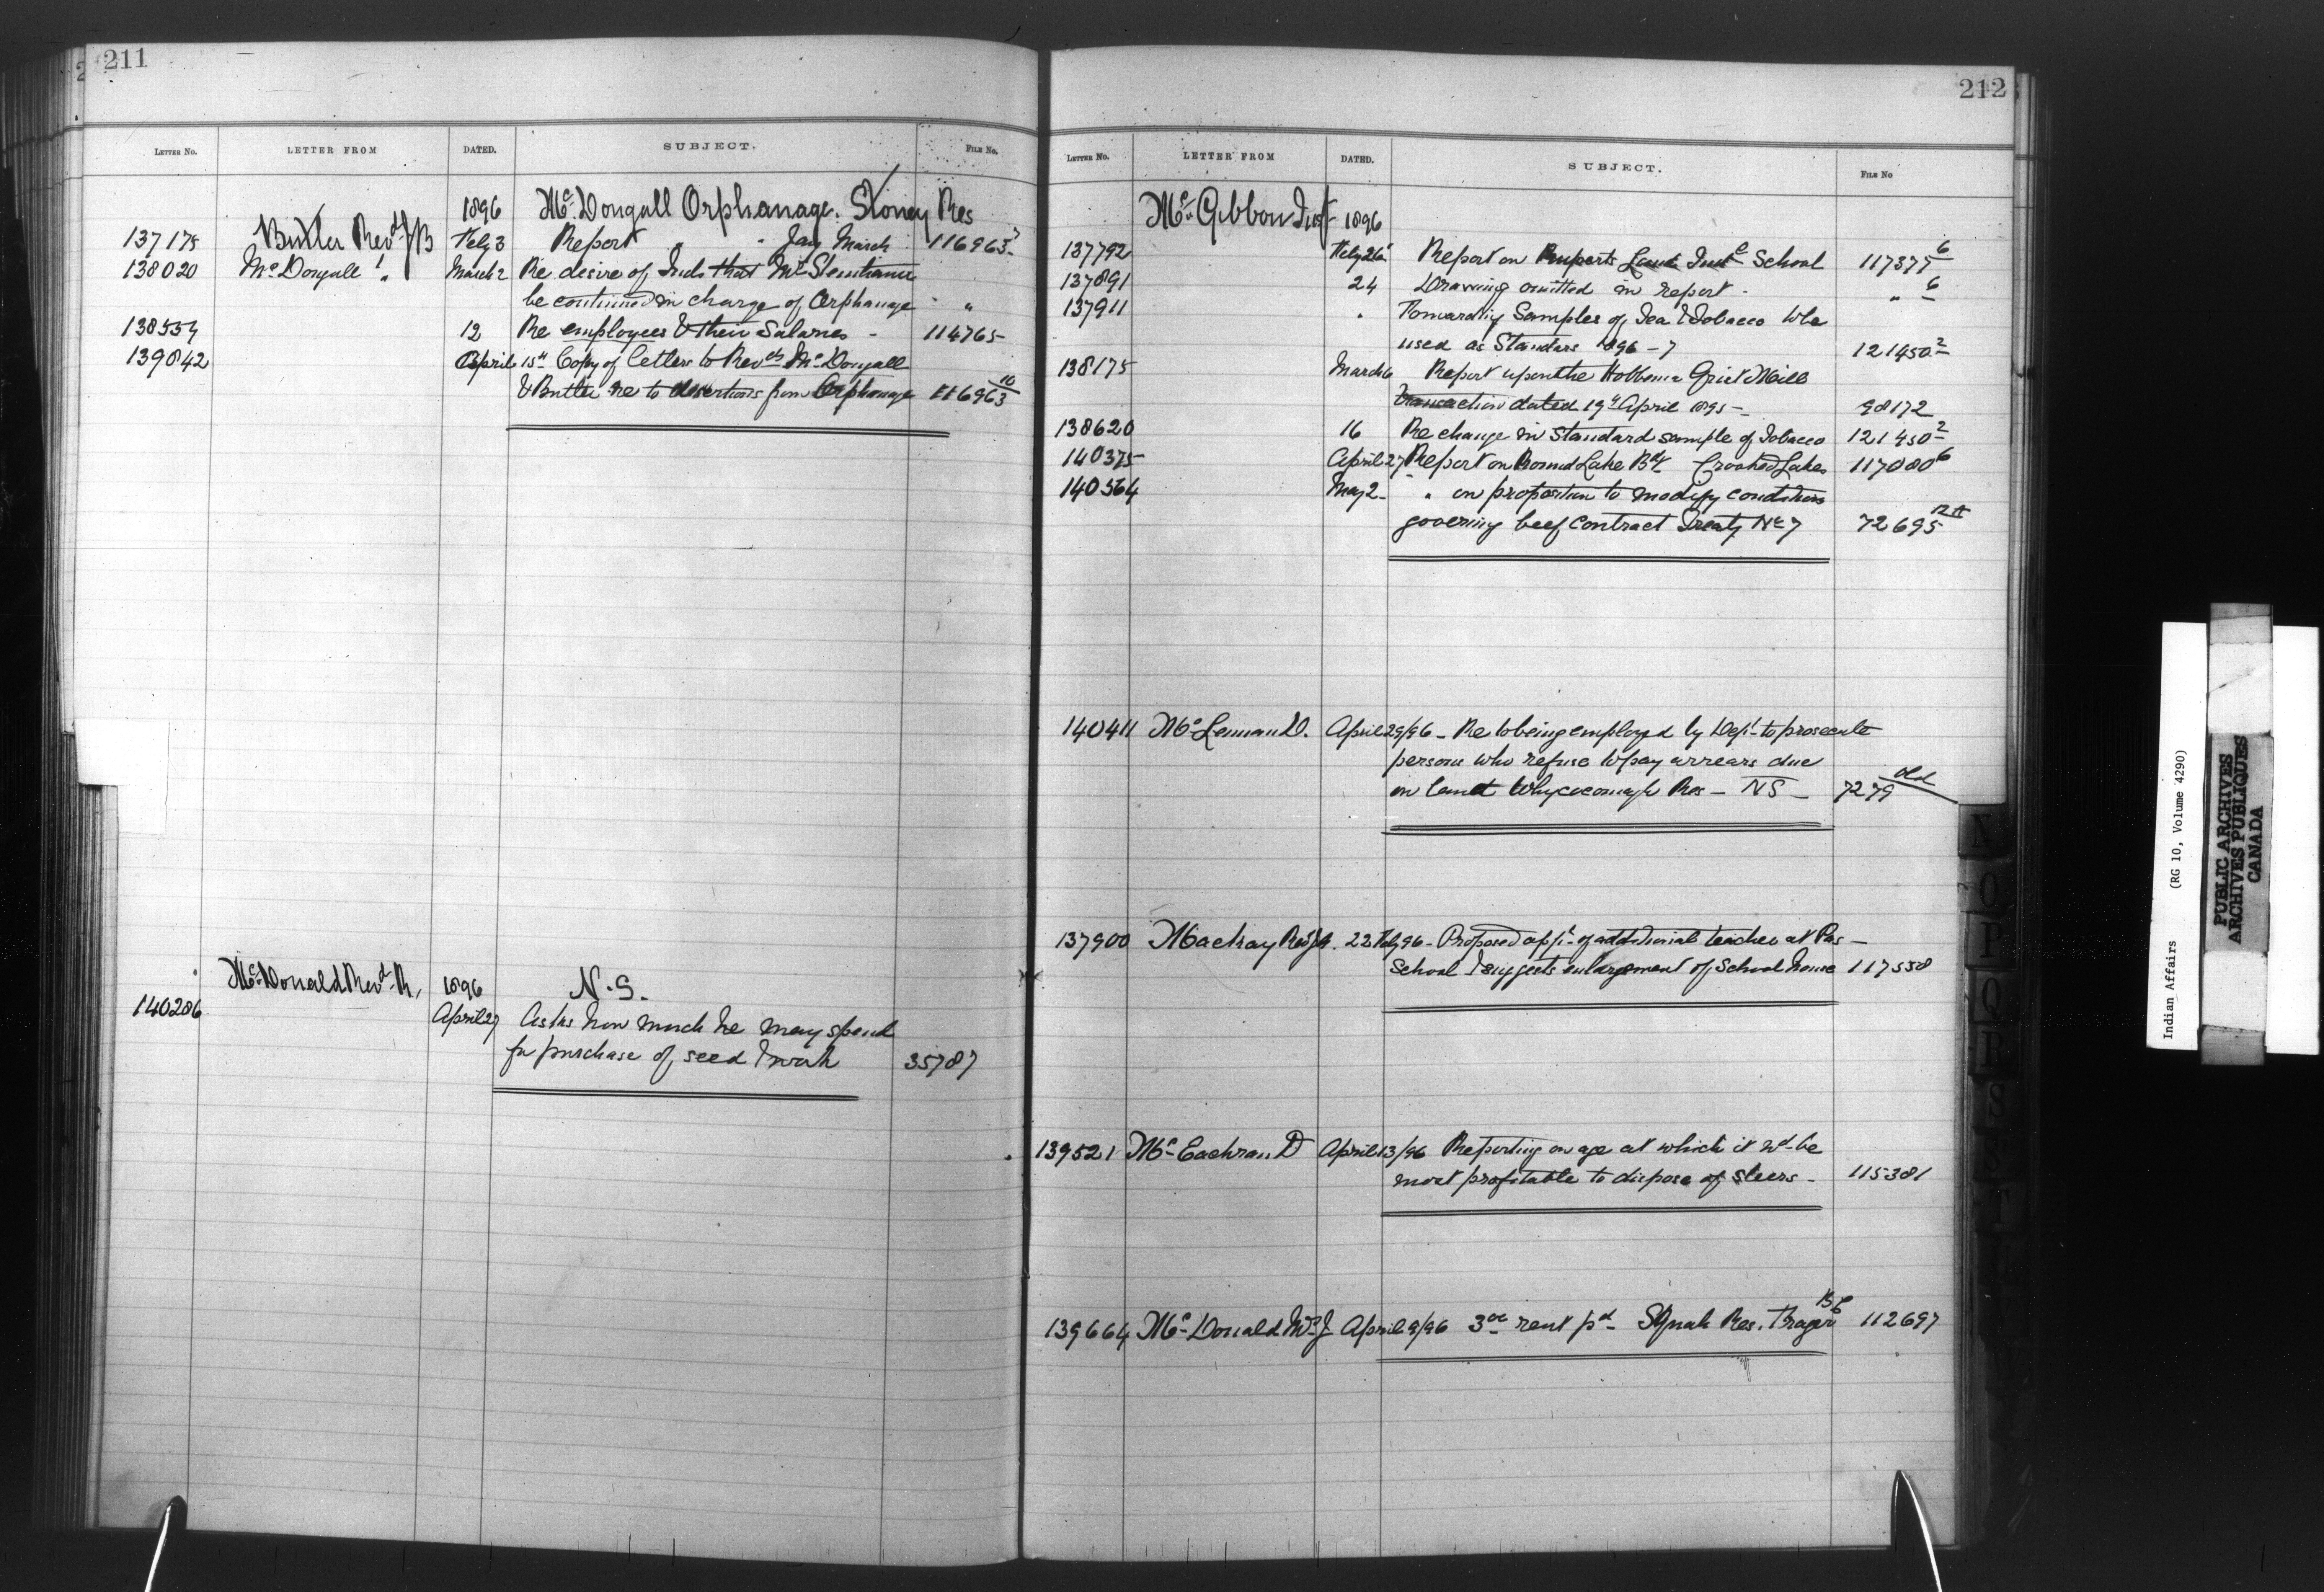 211
LETTER No. LETTER FROM DATED. SUBJECT. FILE No.
1896 Mc Dougall Orphanage. Stoney Res
137175 Butler Revd JB Feby 3 Report " Jany March 116963 7
138020 McDougall J " March 2 Re desire of Inds that Mr
be continued in charge of Orphanage "
138554 12 Re employees & their Salaries - 114765
139842 April 15th Copy of letters to Revds McDougall
& Butler re to desertions from Orphanage 116963 10
McDonald Revd R, 1896 N.S.
140286 April 27 Asks how much he may spend
for purchase of seed & work 35787
212
LETTER No. LETTER FROM DATED. SUBJECT. FILE No
Mc Gibbon Insp 1896
137792 Feby 26 Report on Ruperts Land Indl School 117377 6
137891 24 Drawing omitted in report - " 6
137911 " Forwarding Samples of Tea & Tobacco to be
used as Standars 1896-7 121450 2
138175 March 6 Report upon the Hobbema Grist Mill
transaction dated 19th April 1895 - 98172
138620 16 Re change in Standard sample of Tobacco 121450 2
140375 April 27 Report on Round Lake Bdg Crooked Lakes 117080 6
140564 May 2 " on proposition to modify conditions
governing beef Contract Treaty No 7 72695 12A
140411 McLennan D. April 29/96 - Re to being employed by Dept to prosecute
persons who refuse to pay arrears due
on land Whycocomagh Res - NS - 7279 old
137900 Machray Revd JA. 22 Feby 96 - Proposed appt of additional teacher at Pas -
School & suggests enlargement of School house 117558
139521 McEachran D April 13/96 Reporting on age at which it wd be
most profitable to dispose of steers - 115381
139664 McDonald W J April 9/96 3.00 rent pd - Squah Res. Fraser BC 112697
Indian Affairs (RG 10, Volume 4290)
PUBLIC ARCHIVES
ARCHIVES PUBLIQUES
CANADA
N
O
P
Q
R
S
T